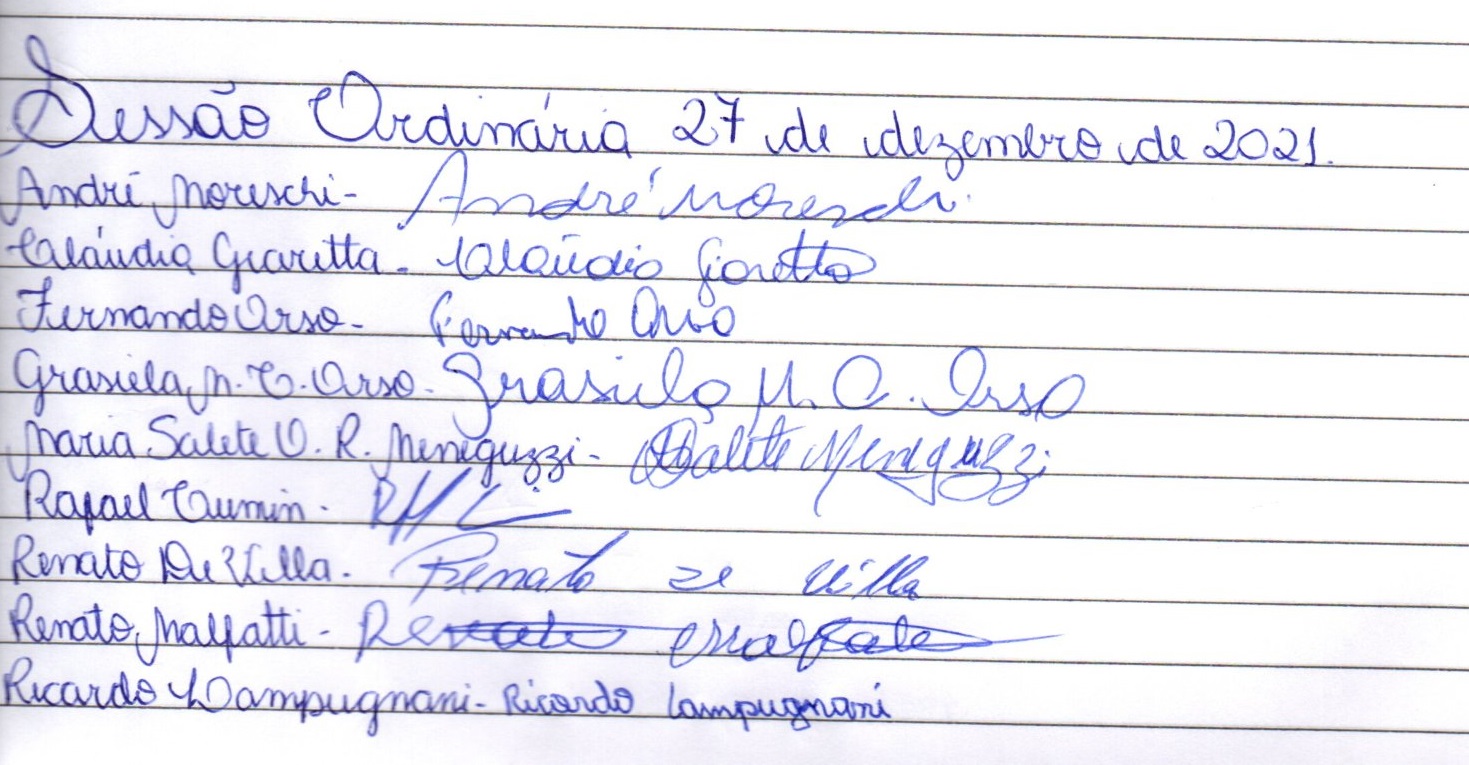 Sessão Ordinária 27 de dezembro de 2021.
André Moreschi - André Moreschi
Claúdia Giaretta - Claúdia Giaretta
Fernando Orso - Fernando Orso
Grasiela M. C. Orso - Grasiela M. C. Orso
Maria Salete O. R. Meneguzzi - Salete Meneguzzi
Rafael Tumin -
Renato De Villa - Renato De Villa
Renato Malfatti - Renato Malfatti
Ricardo Lampugnani - Ricardo Lampugnani